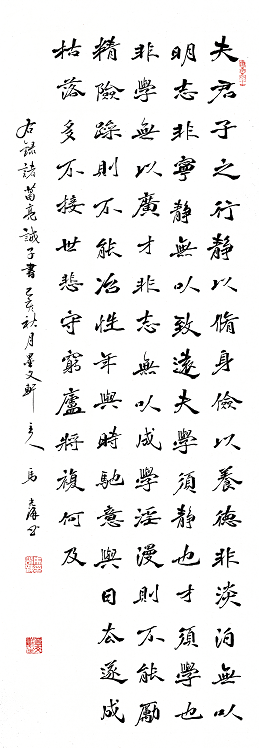 夫君子之行靜以脩身儉以養德非淡泊無以
明志非寧靜無以致遠夫學須靜也才須學也
非學無以廣才非志無以成學淫漫則不能勵
精險躁則不能冶性年與時馳意與日去遂成
枯落多不接世悲守窮廬將複何及
右錄諸葛亮誡子書 己亥秋月墨文軒主人 馬書